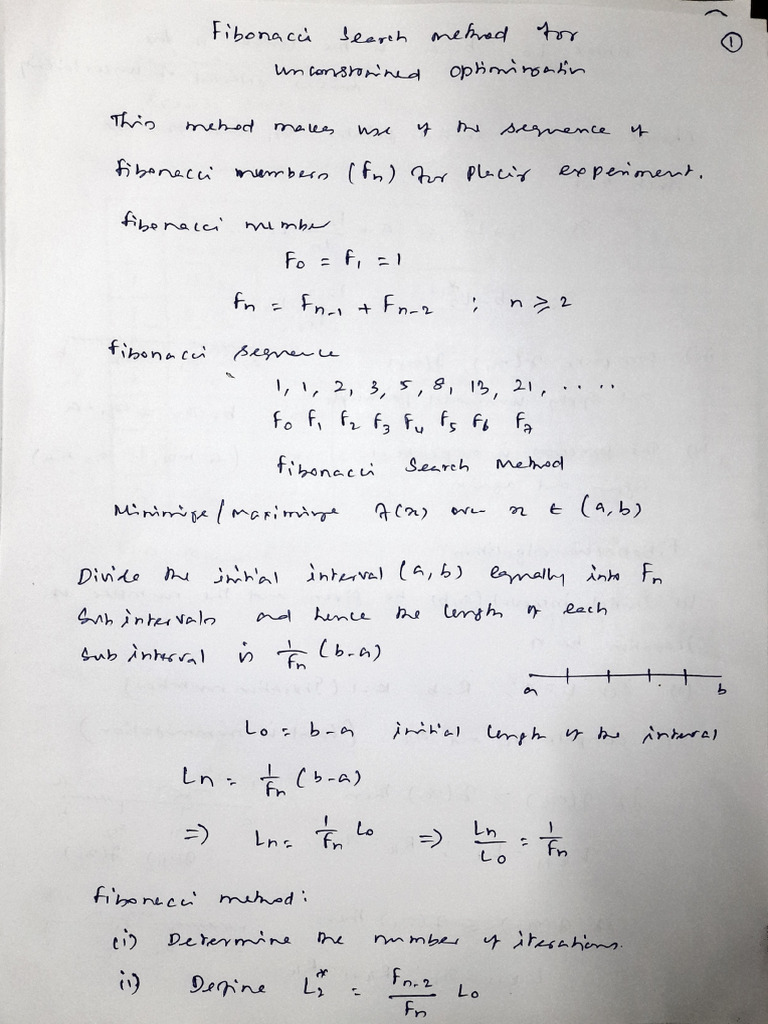 ①
Fibonacci Search method for
unconstrained optimization
This method makes use of the sequence of
fibonacci numbers (fn) for placing experiment.
fibonacci number
F₀ = F₁ = 1
Fₙ = Fₙ₋₁ + Fₙ₋₂ ; n ≥ 2
fibonacci sequence
1, 1, 2, 3, 5, 8, 13, 21, ....
F₀ F₁ F₂ F₃ F₄ F₅ F₆ F₇
fibonacci Search Method
Minimize / maximize f(x) over x ∈ (a, b)
Divide the initial interval (a, b) equally into Fₙ
Sub intervals and hence the length of each
sub interval is 1/Fₙ (b-a)
a b
L₀ = b-a initial length of the interval
Lₙ = 1/Fₙ (b-a)
=> Lₙ = 1/Fₙ L₀ => Lₙ/L₀ = 1/Fₙ
fibonacci method:
(i) Determine the number of iterations.
ii) Define L₂* = Fₙ₋₂/Fₙ L₀